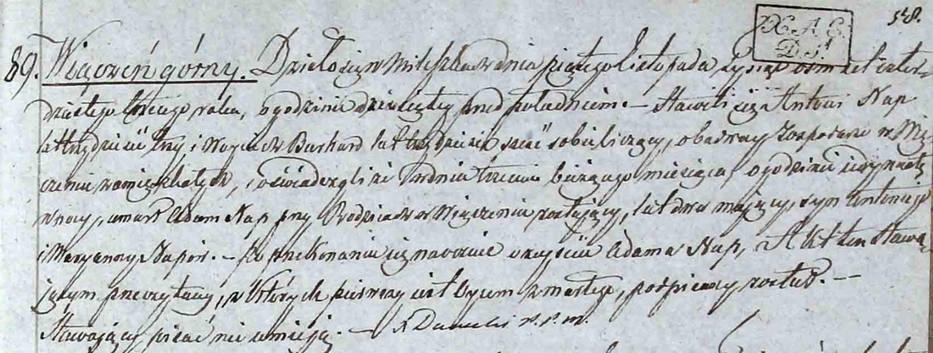 558.
X A E
D S
89. Wiączeń górny. Działo się w Miszkowie dnia piątego Listopada tysiąc ośmset czter-
dziestego trzeciego roku, o godzinie dziewiątey przed południem. — Stawili się Antoni Nap
lat trzydzieści trzy i Woyciech Burhard lat trzydzieści sześć sobie liczący, obadway Gospodarze w Wią-
czeniu zamieszkałych, i oświadczyli że w dniu trzecim bieżącego miesiąca o godzinie jedynastey
w nocy, umarł Adam Nap przy Rodzicach w Wiączeniu zostający, lat dwa mający, syn Antoniego
i Maryanny Napów. — Po przekonaniu się naocznie o zeyściu Adama Nap, Akt ten stawa-
jącym przeczytany, z których pierwszy jest Oycem zmarłego, podpisany został. —
Stawający pisać nie umieją. —